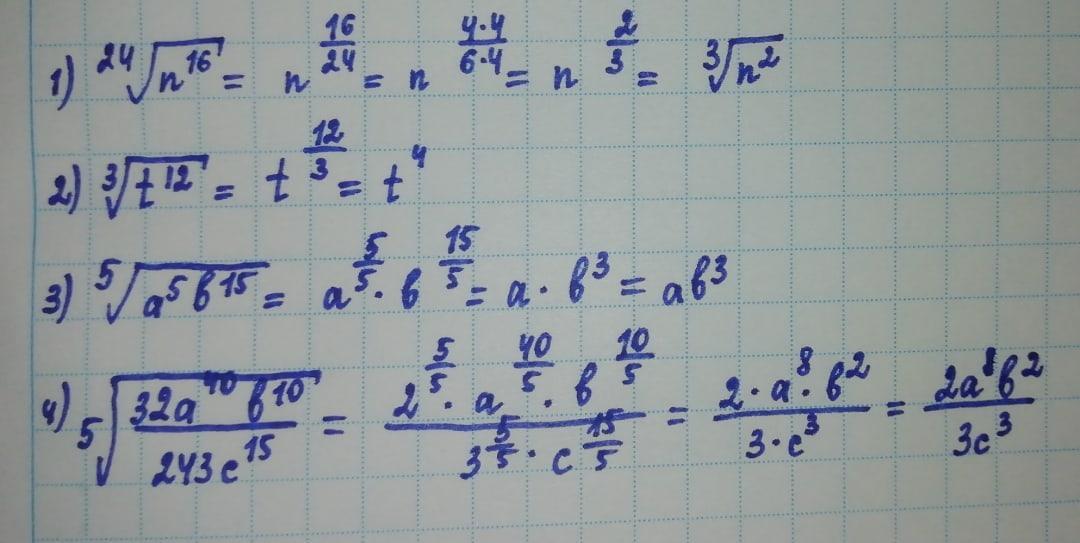 1) ²⁴√n¹⁶ = n^(16/24) = n^(4·4/6·4) = n^(2/3) = ³√n²
2) ³√t¹² = t^(12/3) = t⁴
3) ⁵√a⁵b¹⁵ = a^(5/5) · b^(15/5) = a · b³ = ab³
4) ⁵√(32a⁴⁰b¹⁰/243c¹⁵) = (2^(5/5) · a^(40/5) · b^(10/5))/(3^(5/5) · c^(15/5)) = (2 · a⁸ · b²)/(3 · c³) = 2a⁸b²/3c³